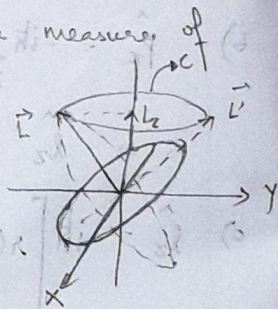 measure of
C
L⃗ L_z L⃗'
Y
X